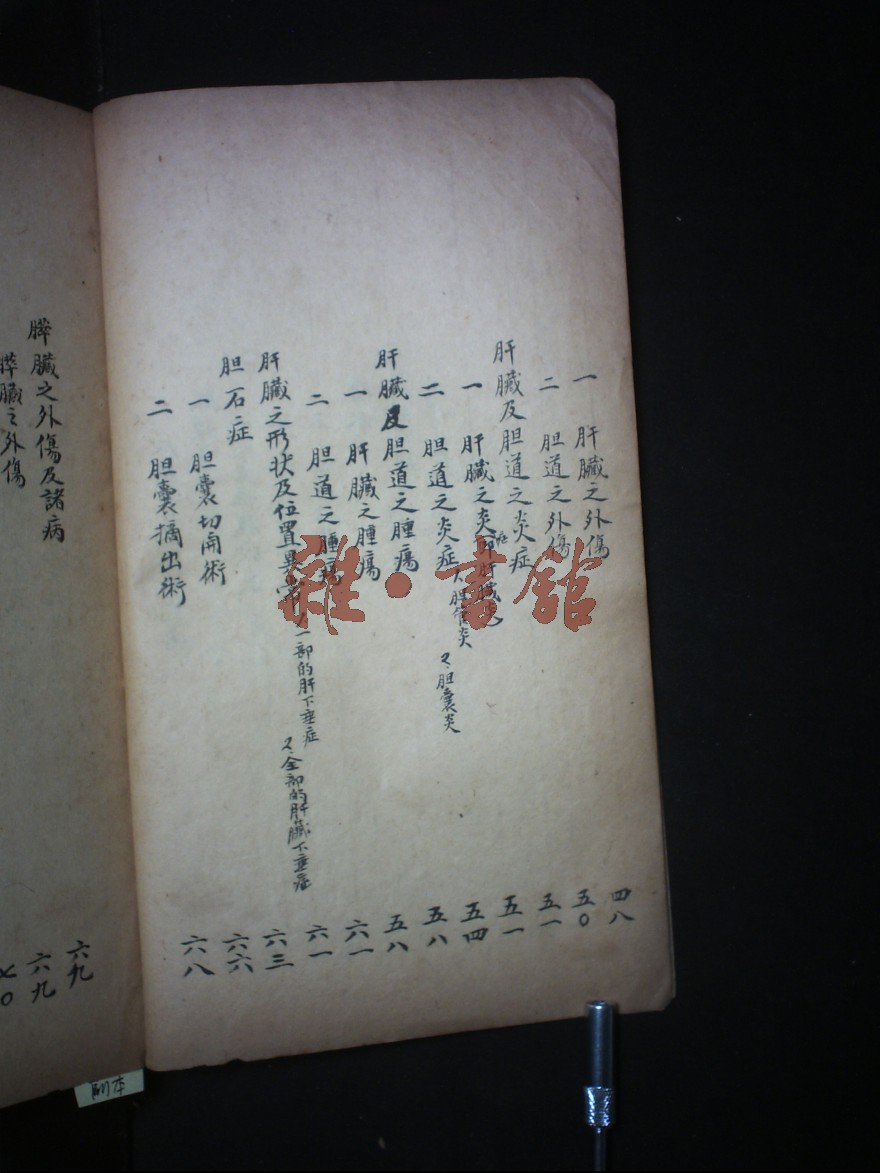 一 肝臓之外傷 四八
二 胆道之外傷 五〇
肝臓及胆道之炎症 五一
一 肝臓之炎症 五一
二 胆道之炎症 1、胆管炎 2、胆囊炎 五四
肝臓及胆道之腫瘍 五八
一 肝臓之腫瘍 五八
二 胆道之腫瘍 六一
肝臓之形状及位置異常 1、一部的肝下垂症 2、全部的肝臓下垂症 六一
胆石症 六三
一 胆囊切開術 六六
二 胆囊摘出術 六八
膵臓之外傷及諸病 六九
膵臓之外傷 六九
七〇
雜·書館
副本